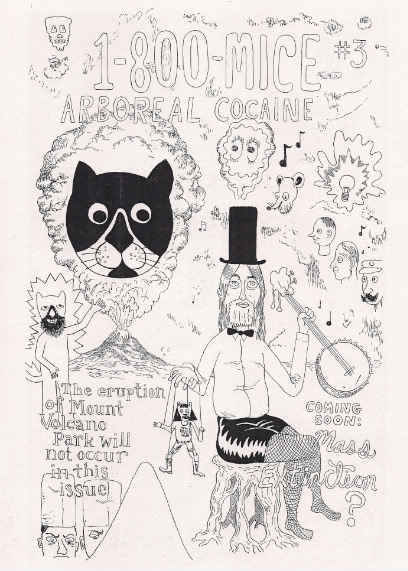 1-800-MICE #3
ARBOREAL COCAINE
The eruption
of Mount
Volcano
Park will
not occur
in this
issue
COMING
SOON:
Mass
Extinction
?